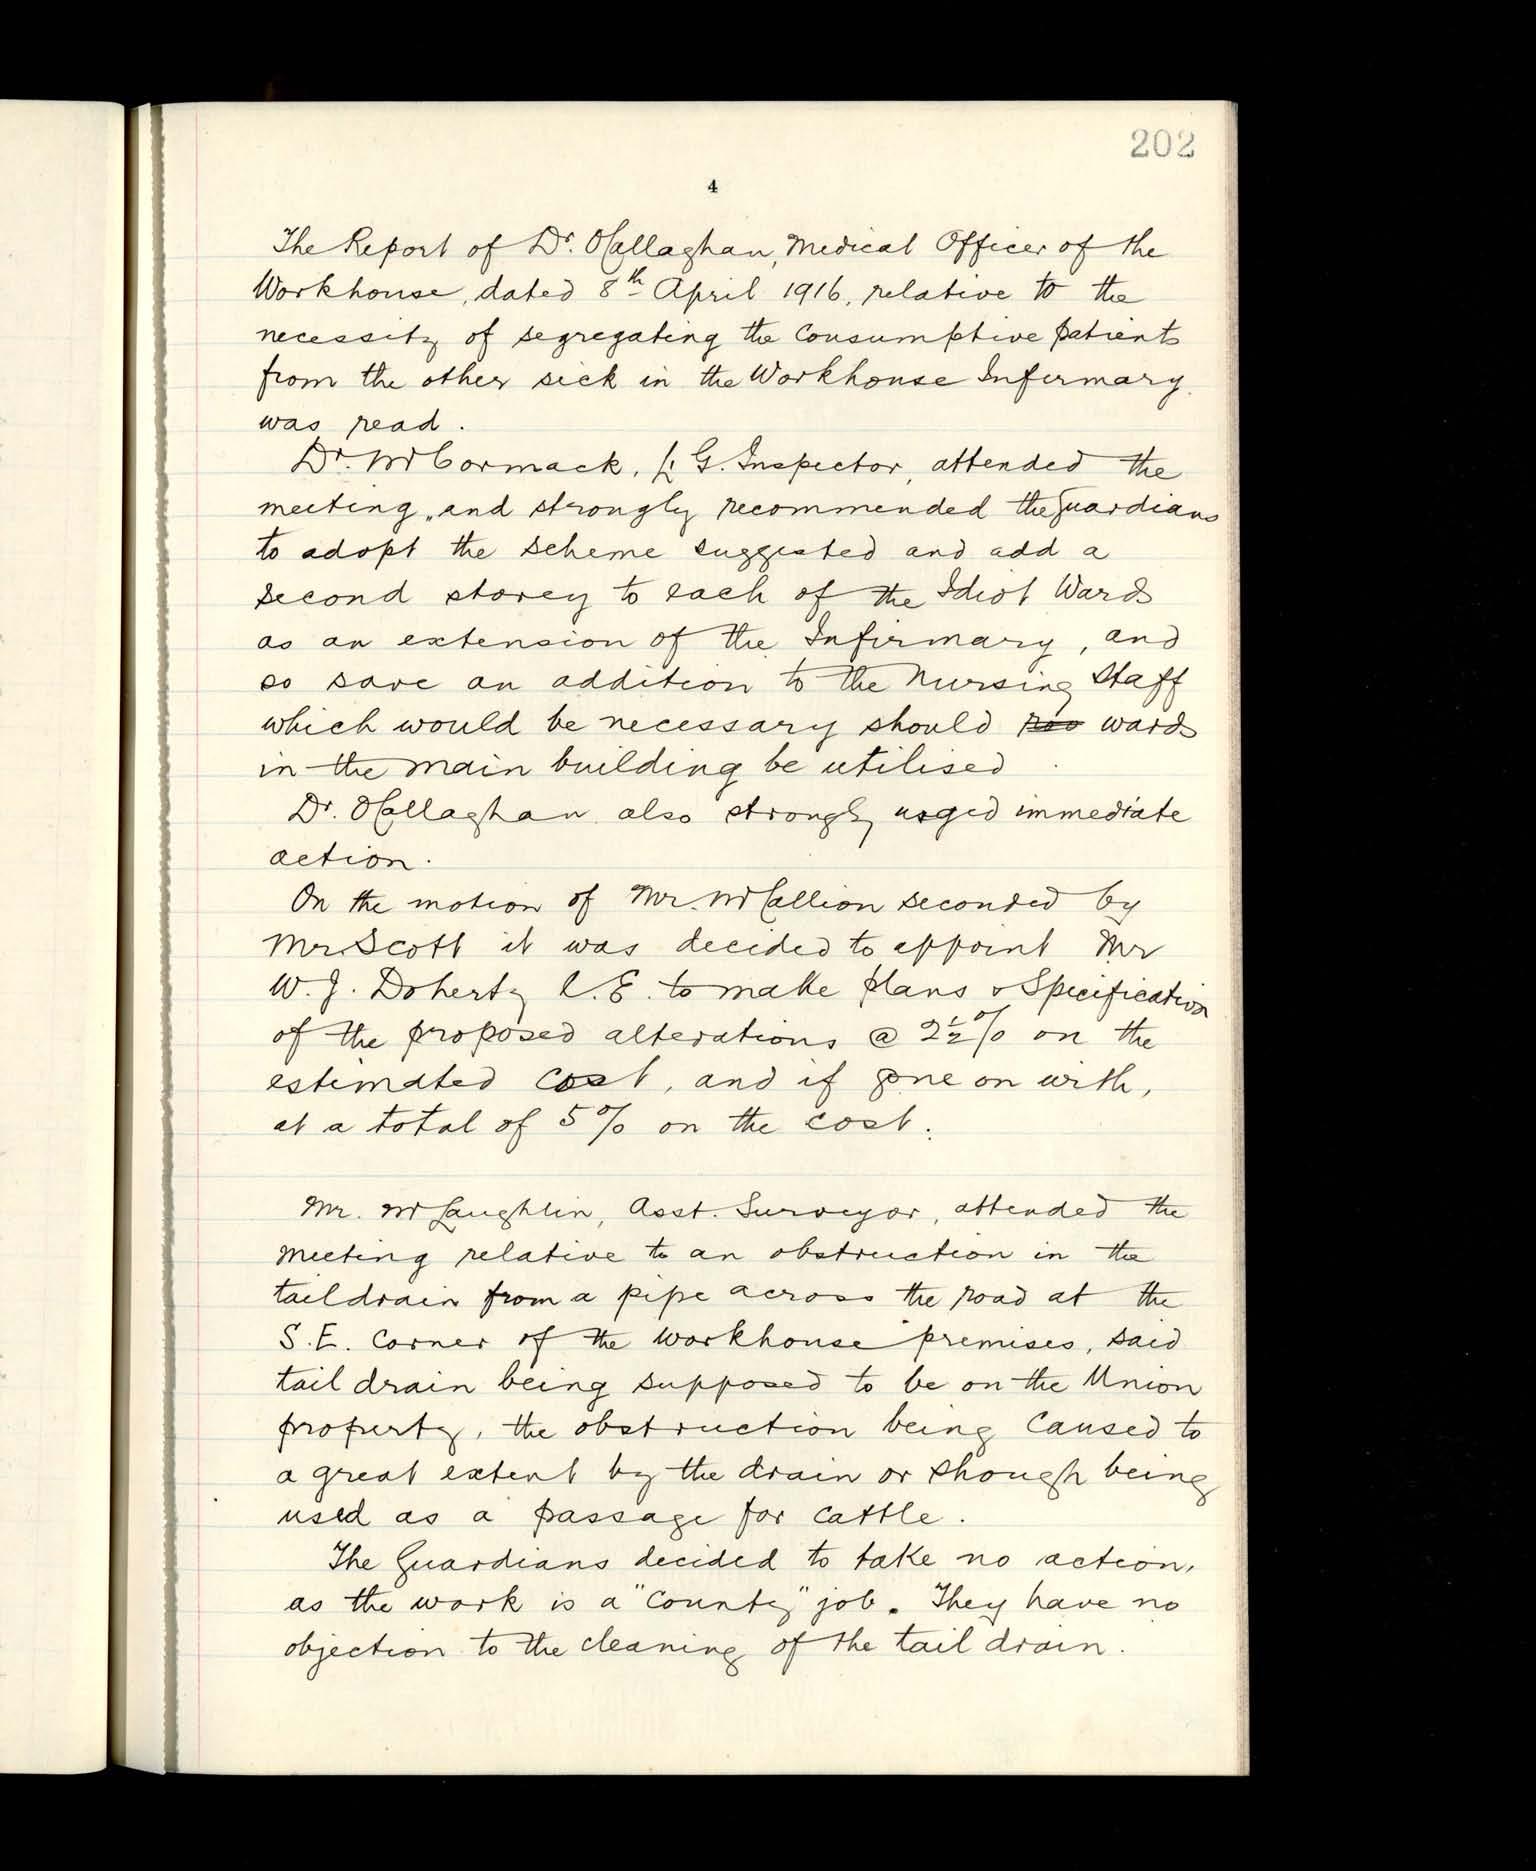 202
4
The Report of Dr. O'Callaghan, Medical Officer of the
Workhouse, dated 8th April 1916, relative to the
necessity of segregating the Consumptive patients
from the other sick in the Workhouse Infirmary
was read.
Dr. McCormack, L. G. Inspector, attended the
meeting, and strongly recommended the Guardians
to adopt the scheme suggested and add a
second storey to each of the Idiot Wards
as an extension of the Infirmary, and
so save an addition to the Nursing Staff
which would be necessary should roo wards
in the main building be utilised
Dr. O'Callaghan also strongly urged immediate
action.
On the motion of Mr. McCallion seconded by
Mr. Scott it was decided to appoint Mr
W. J. Doherty C.E. to make plans & Specification
of the proposed alterations @ 2½% on the
estimated cost, and if gone on with,
at a total of 5% on the cost.
Mr. McLaughlin, Asst. Surveyor, attended the
meeting relative to an obstruction in the
taildrain from a pipe across the road at the
S.E. Corner of the Workhouse premises, said
tail drain being supposed to be on the Union
property, the obstruction being caused to
a great extent by the drain or shough being
used as a passage for cattle.
The Guardians decided to take no action,
as the work is a "County" job. They have no
objection to the cleaning of the tail drain.